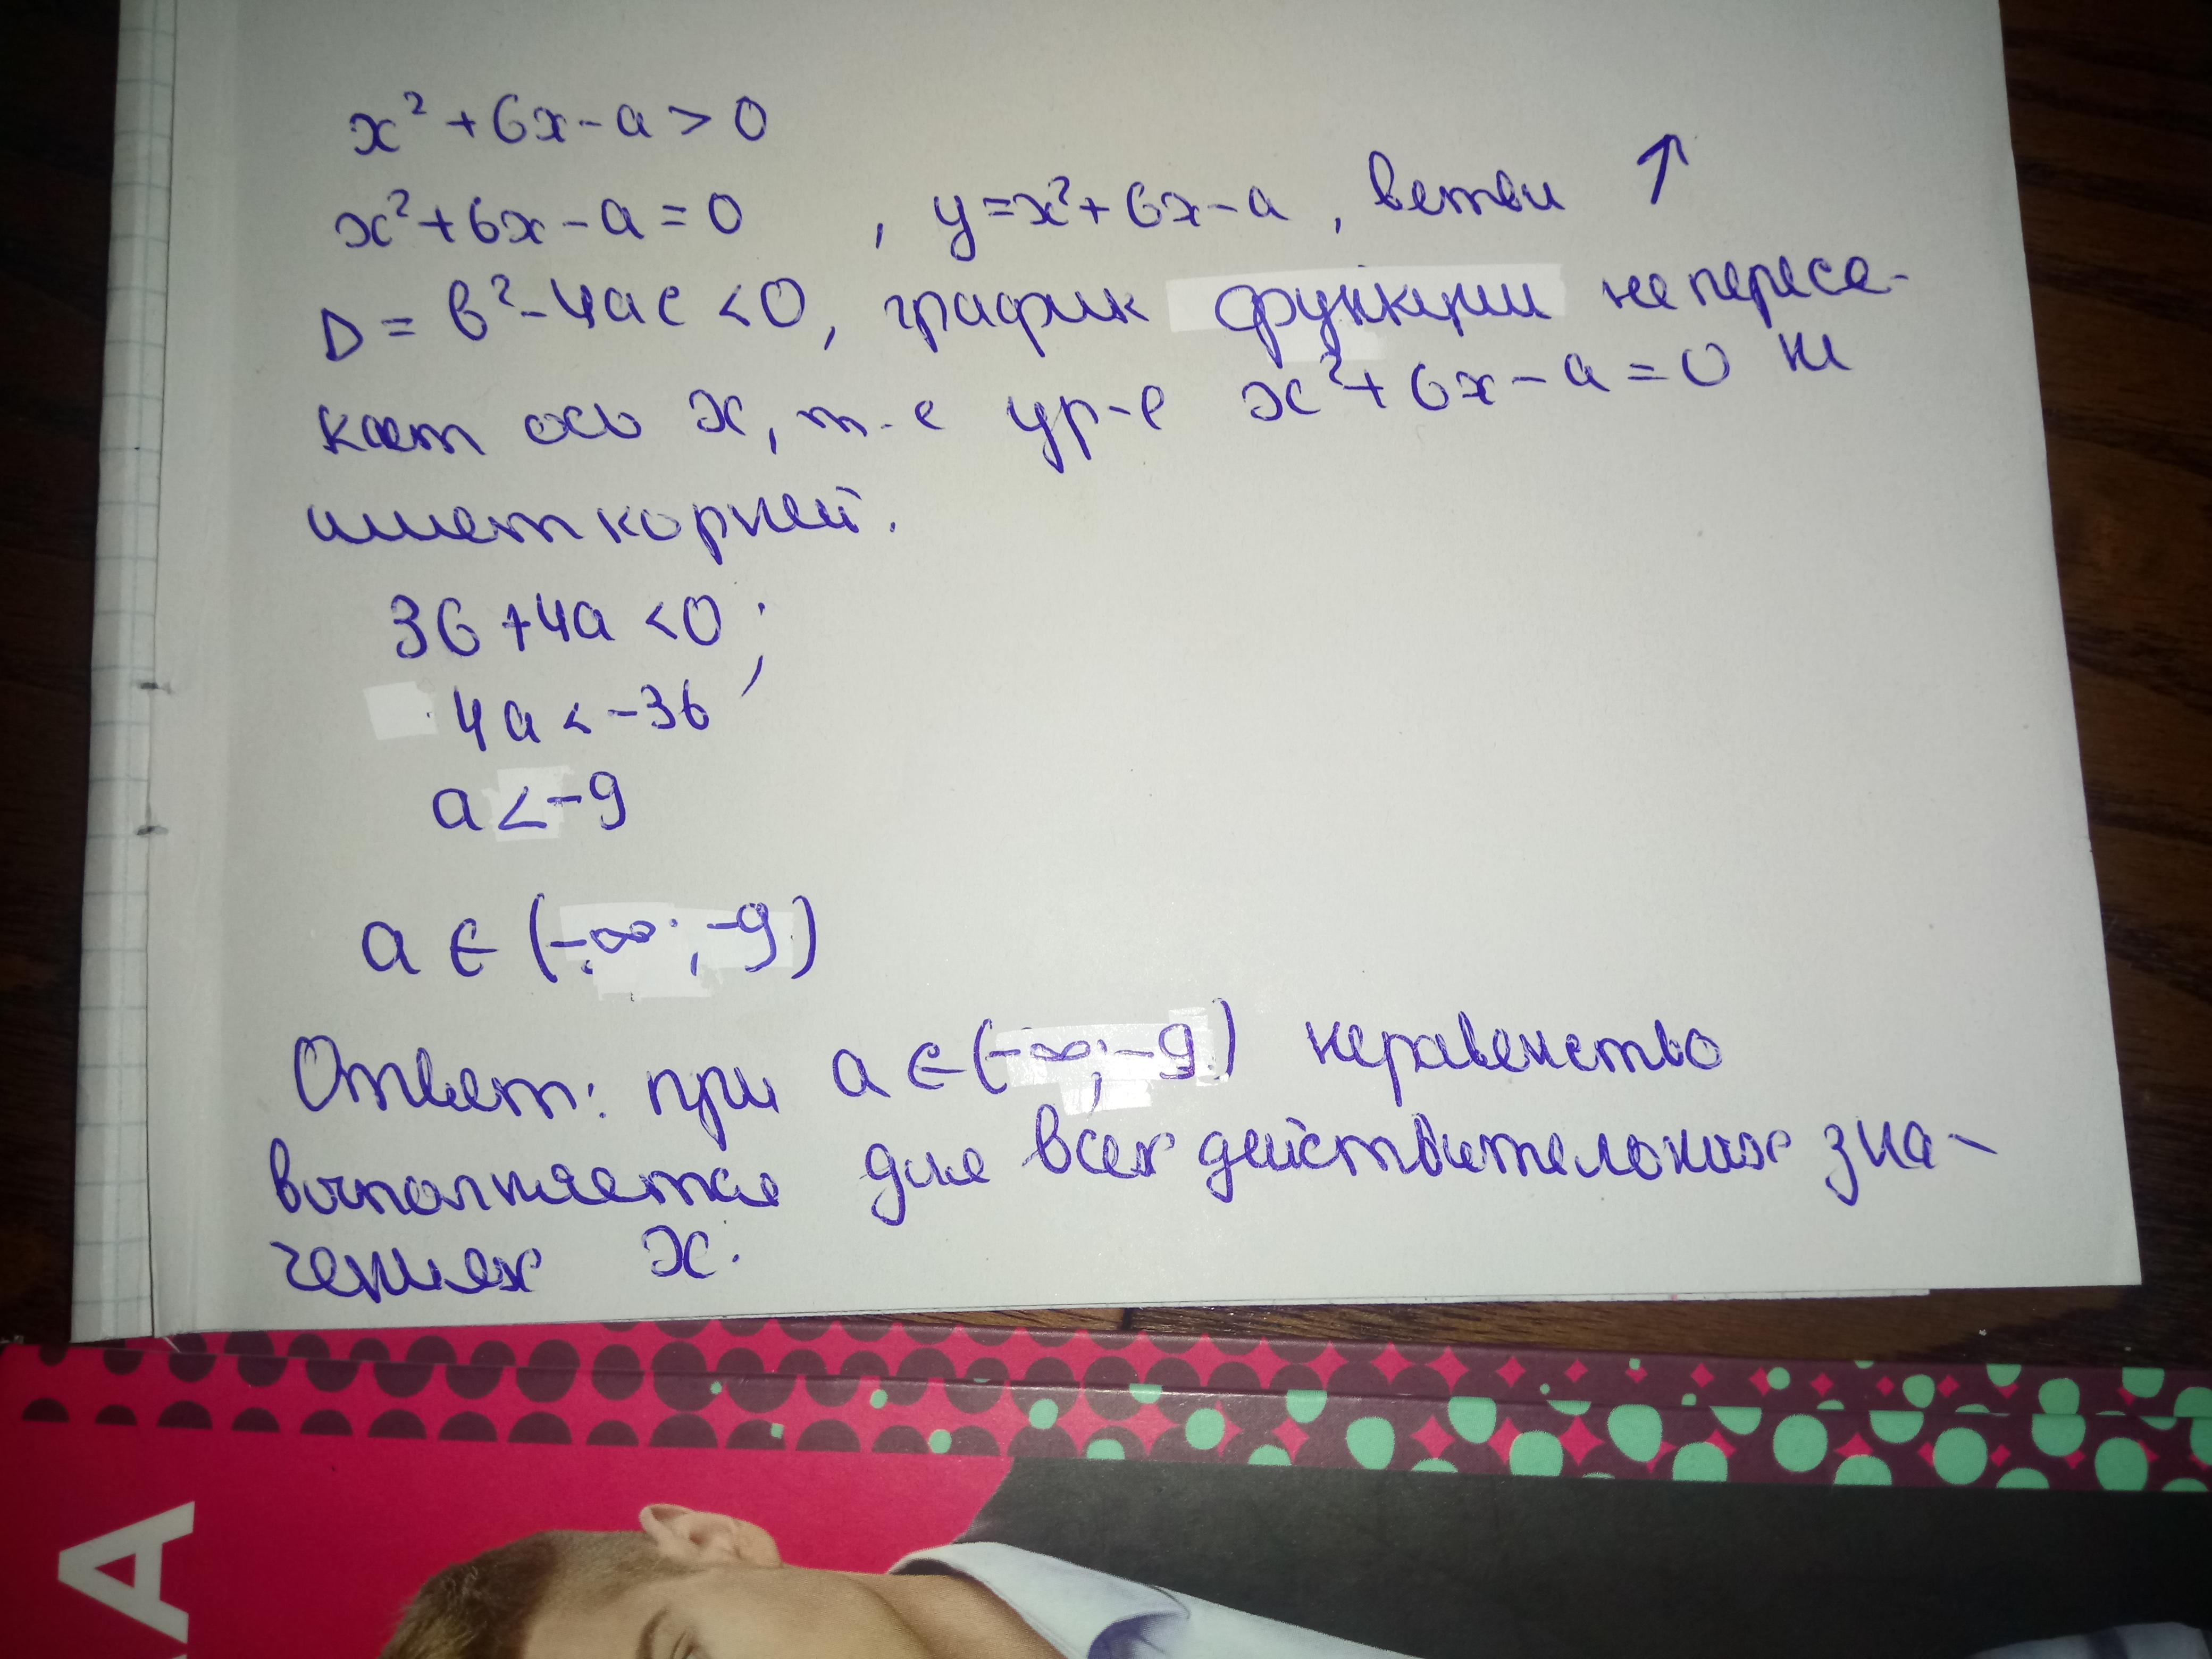 x²+6x-a>0
x²+6x-a=0 , y=x²+6x-a, ветви ↑
D=b²-4ac<0, график функции не пересе-
кает ось x, т.е ур-е x²+6x-a=0 не
имеет корней.
36+4a<0;
4a<-36
a<-9
a∈(-∞;-9)
Ответ: при a∈(-∞;-9) неравенство
выполняется для всех действительных зна-
чениях x.
A